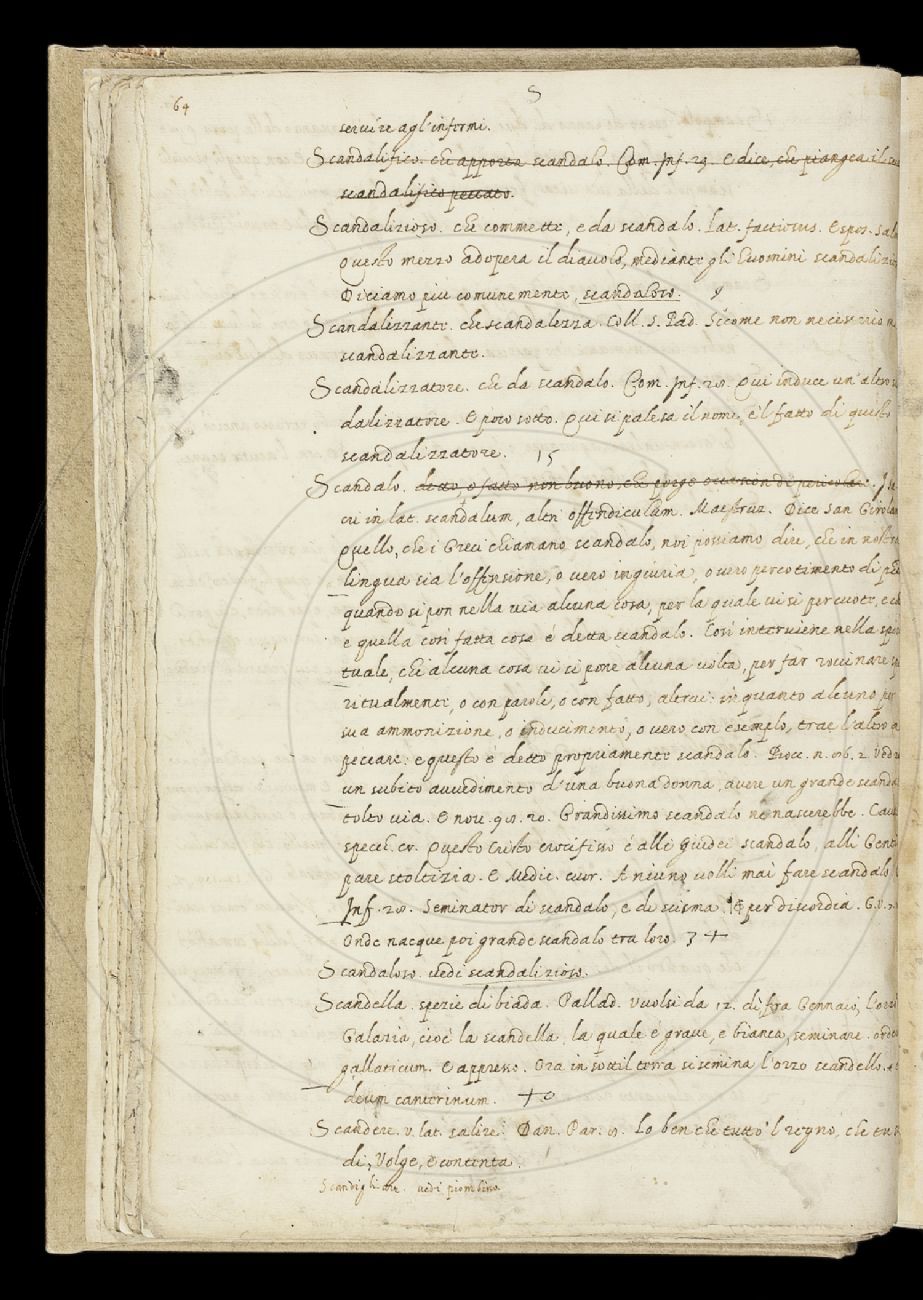 64
S
servire agl'infermi.
Scandalifico. che apporta scandalo. Com. Inf. 29. E dice, che piangea il
scandalifico peccato.
Scandalizioso. che commette, e da scandalo. Lat. factiosus. Espos. Sal
questo mezzo adopera il diavolo, mediante gli huomini scandalizi
Diciamo piu comunemente, scandaloso.
Scandalizzante. che scandalezza. Coll. S. Pad. Sicome non necessario
scandalizzante.
Scandalizzatore. che da scandalo. Com. Inf. 28. Qui induce un'altro
dalizzatore. E poco sotto. Qui si palesa il nome, e'l fatto di questo
scandalizzatore. 15
Scandalo. detto, o fatto non buono, che porge occasion di
cui in lat. scandalum, altri offendiculum. Maestruz. Dice San Girola
Quello, che i Greci chiamano scandalo, noi possiamo dire, che in nostra
lingua sia l'offensione, o vero ingiuria, o vero percotimento di pie
quando si pon nella via alcuna cosa, per la quale vi si percuote, e
e quella così fatta cosa é detta scandalo. Così interviene nella spiri
tuale, che alcuna cosa vi si pone alcuna volta, per far rovinare spi
ritualmente, o con parole, o con fatto, altrui: in quanto alcuno per
sua ammonizione, o inducimento, o vero con esemplo, trae l'altro a
peccare: e questo é detto propriamente scandalo. Bocc. n. 2. Vedu
un subito avvedimento d'una buona donna, avere un grande scanda
tolto via. E nov. 98. 20. Grandissimo scandalo ne nascerebbe. Caval
specch. cr. Questo Cristo crocifisso é alli Giudei scandalo, alli Genti
pare stoltizia. E Medic. cuor. A niuno volli mai fare scandalo
Inf. 28. Seminator di scandalo, e di scisma. per discordia. G. V.
Onde nacque poi grande scandalo tra loro. 3 +
Scandaloso. vedi scandalizioso.
Scandella. spezie di biada. Pallad. Vuolsi da 12. di fra Gennaio, l'orzo
Galazia, cioé la scandella, la quale é grave, e bianca, seminare. orde
gallaticum. E appresso. Ora in sottil terra si semina l'orzo scandello.
deum canterinum. +
Scandere. v. lat. salire. Dan. Par. 8. Lo ben che tutto 'l regno, che tu
di, Volge, e contenta.
Scandigliare. vedi piombino